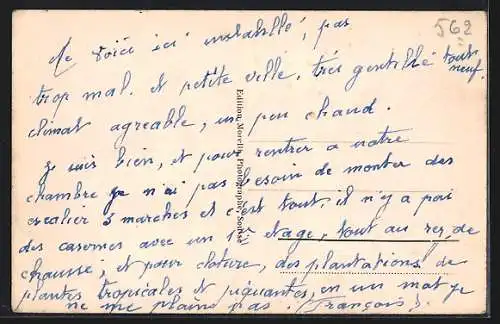 562
Me voici ici instalallé, pas
trop mal. et petite ville, très gentillé tout neuf.
climat agreable, un peu chaud.
je suis bien, et pour rentrer a notre
chambre je n'ai pas besoin de monter des
escalier 3 marches et c'est tout. il n'y a pai
des casernes avec un 1er etage, tout au rez de
chaussé; et pour cloture, des plantations de
plantes tropicales et piquantes, en un mot je
ne me plains pas. (François).
Edition Morelli, Photographie, Sousse